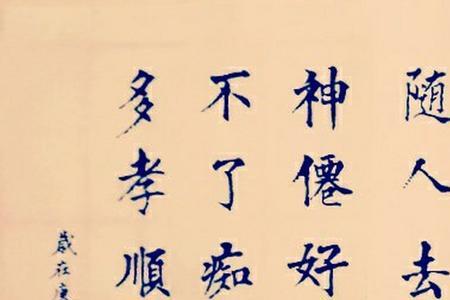 随人去
神僊好
不了痴
多孝順
歲在庚